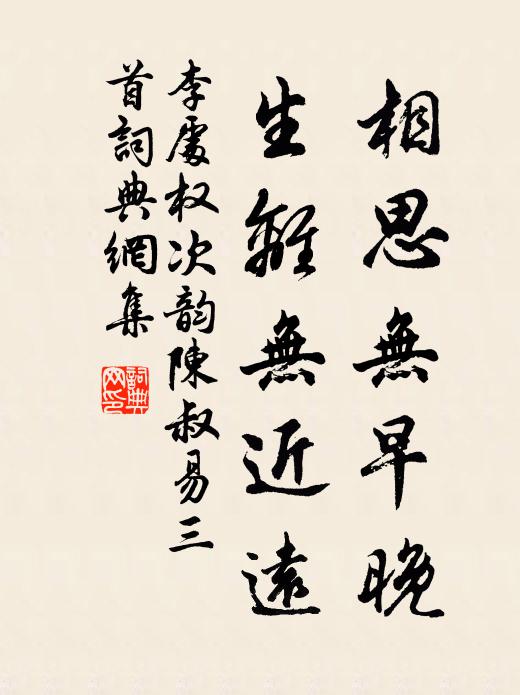 相思無早晚
生離無近遠
李處权次韵陳叔易三
首詞典網集
詞典
网印